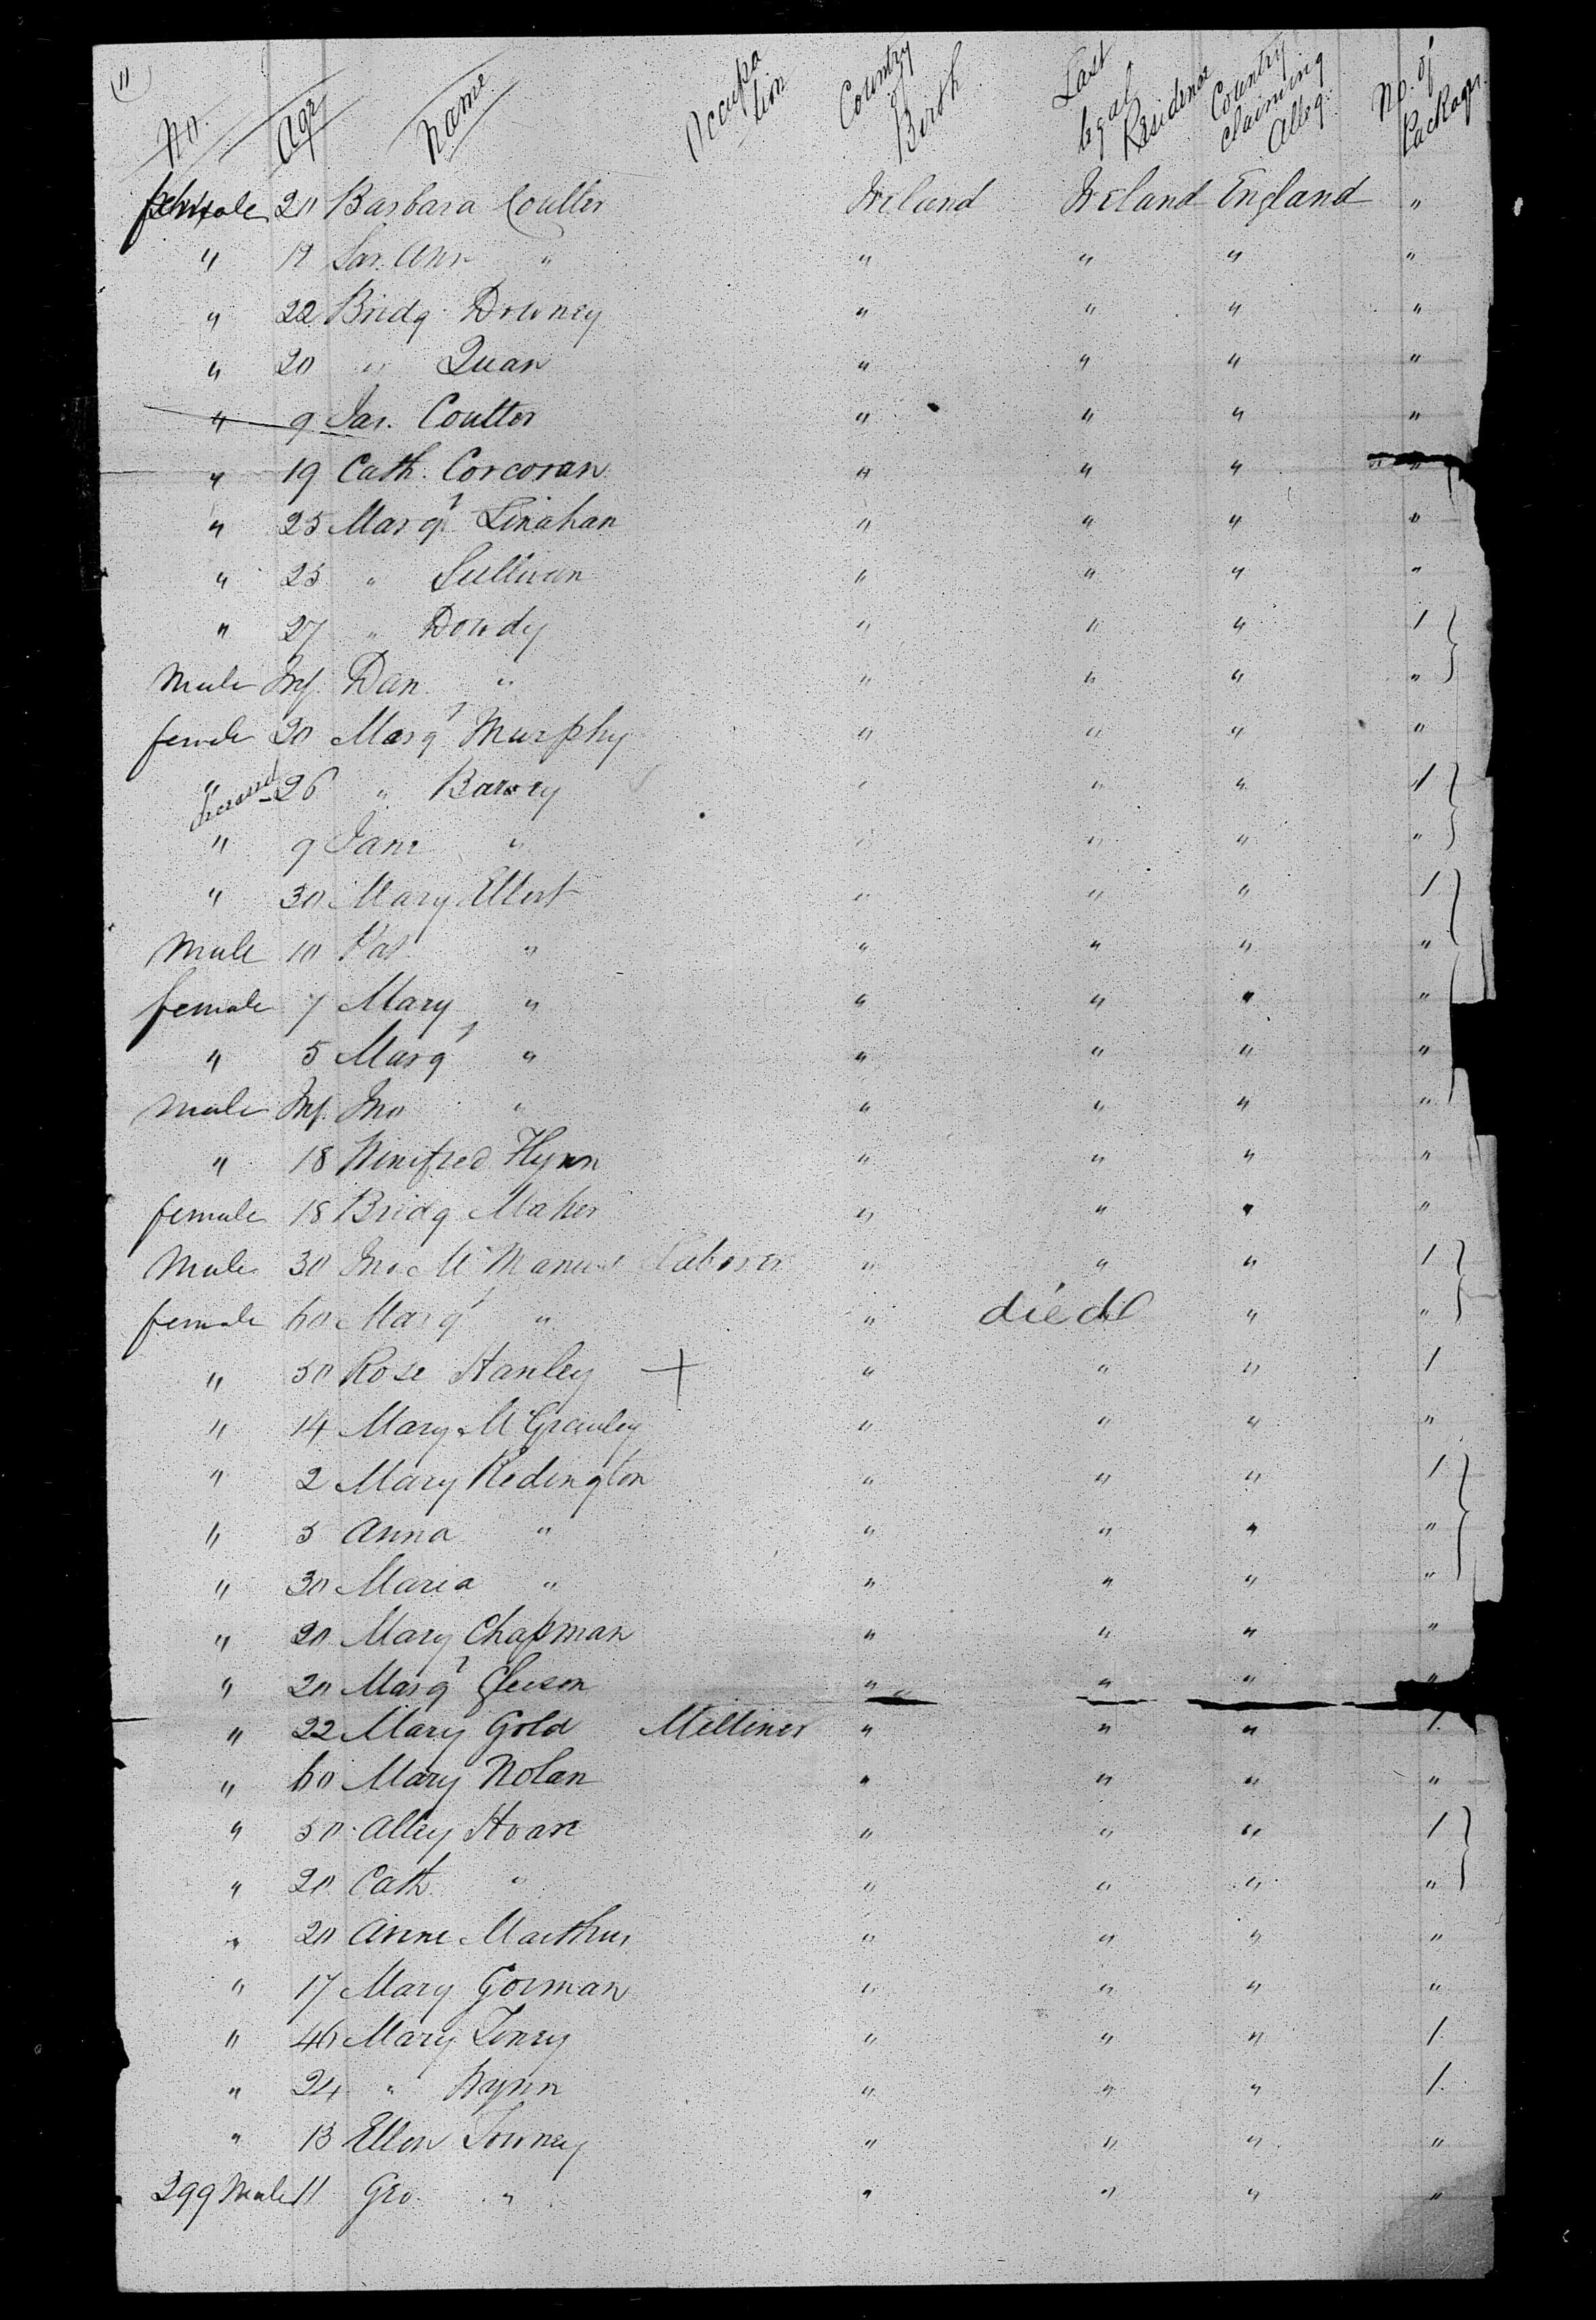 11
No. Age Name Occupation Country of Birth Last legal Residence Country claiming Alleg. No. of Packages
female 20 Barbara Coulter Ireland Ireland England "
" 19 Sar. Ann " " " " "
" 22 Bridg. Downey " " " "
" 20 " Quan " " " "
" 9 Jas. Coulter " " " "
" 19 Cath. Corcoran " " " "
" 25 Margt Linahan " " " "
" 25 " Sullivan " " " "
" 27 " Dowdy " " " 1
Male Inf. Dan " " " " "
female 20 Margt Murphy " " " "
" deceased 26 " " " " 1
" 9 Jane " " " " "
" 30 Mary " " " 1
Male 10 Pat " " " " "
female 7 Mary " " " " "
" 5 Margt " " " " "
male Inf. Jno " " " " "
" 18 Winifred Flynn " " " "
female 18 Bridg Maher " " " "
Male 30 Jno. McManus Laborer " " " 1
female 60 Margt " " died " " "
" 50 Rose Hanley + " " " 1
" 14 Mary " " " "
" 2 Mary Redington " " " 1
" 5 Anna " " " " "
" 30 Maria " " " " "
" 20 Mary Chapman " " " "
" 20 Margt Gleeson " " " "
" 22 Mary Gold Milliner " " " 1
" 60 Mary Nolan " " " "
" 50 Alley Hoare " " " 1
" 20 Cath. " " " " "
" 20 Anne " " " "
" 17 Mary Gorman " " " "
" 46 Mary " " " 1
" 24 " " " " 1
" 13 Ellen " " " "
299 Male 11 Geo. " " " " "